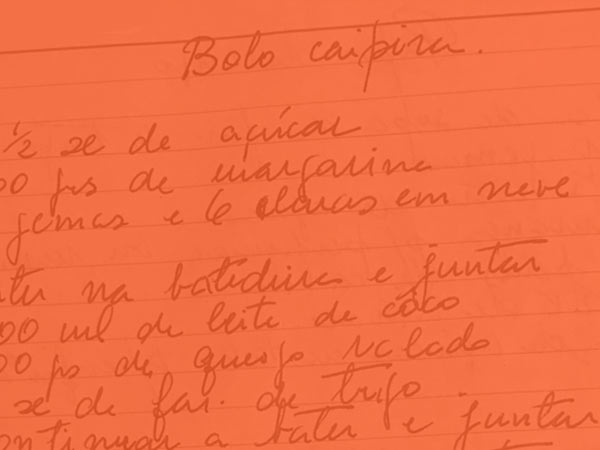 Bolo caipira.
1/2 xe de açúcar
00 grs de margarina
gemas e 6 claras em neve
na batedeira e juntar
00 ml de leite de côco
00 grs de queijo ralado
xe de far. de trigo
continuar a bater e juntar